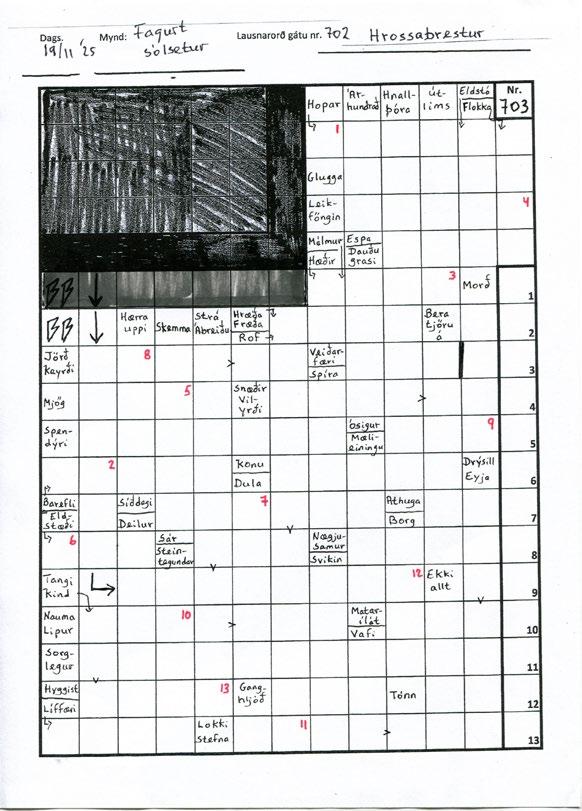 Dags. 19/11 '25
Mynd: Fagurt sólsetur
Lausnarorð gátu nr. 702 Hrossabrestur
Hopar
'Ar-
hundrað
Hnall-
þóra
út-
lims
Eldstó
Flokka
Nr.
703
1
Glugga
Leik-
föngin
4
Málmur
Hæðir
Espa
Dauðu
grasi
BB
3
Morð
1
BB
Hærra
uppi
Skemma
Strá
Abreiðu
Hræða
Fræða
Rof
Bera
tjöru
á
2
Jörð
Keyrði
8
>
Veiðar-
færi
Spíra
3
Mjög
5
Snæðir
Vil-
yrði
>
4
Spen-
dýri
ósigur
Mæli-
einingu
9
5
2
Konu
Dula
Drýsill
Eyja
6
Barefli
Eld-
stæði
Síðdegi
Deilur
7
Athuga
Borg
7
6
Sár
Stein-
tegundar
Nægju-
samur
Svikin
8
Tangi
Kind
12
Ekki
allt
9
Nauma
Lipur
10
>
Matar-
ílát
Vafi
10
Sorg-
legur
11
Hyggist
Líffæri
13
Gang-
hljóð
Tónn
12
Lokki
Stefna
11
>
13